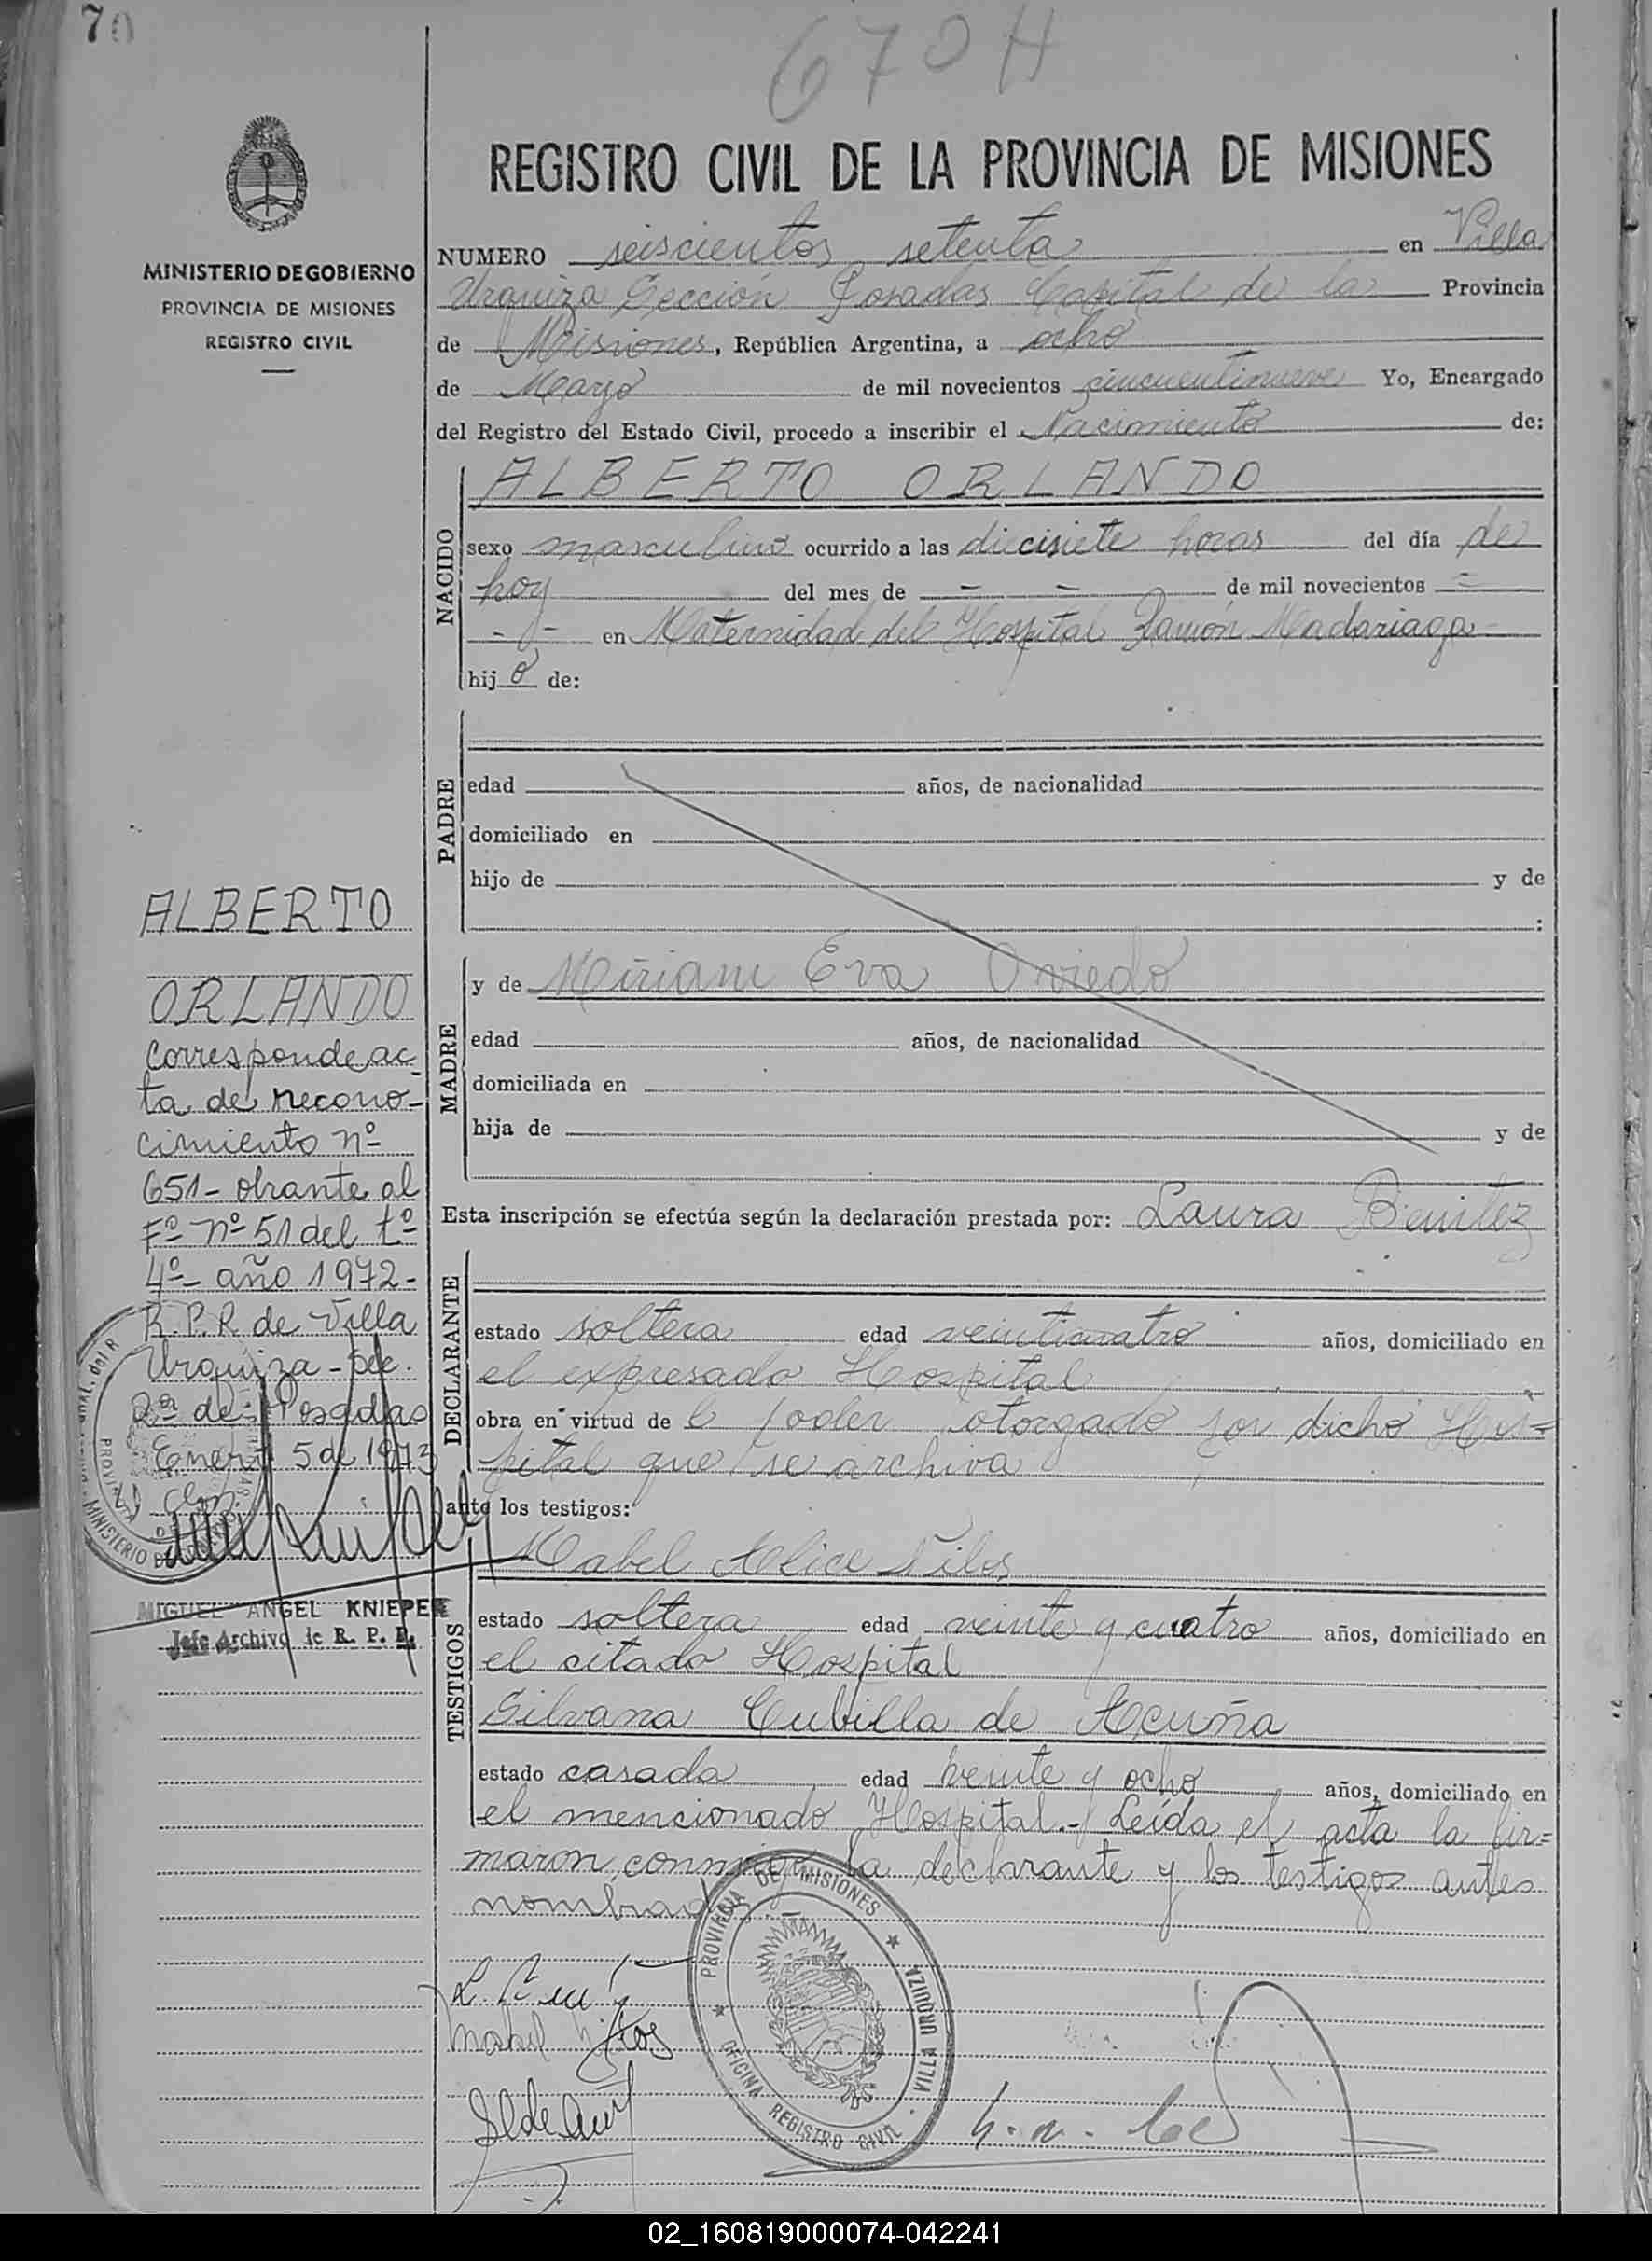 70
670 H
REGISTRO CIVIL DE LA PROVINCIA DE MISIONES
MINISTERIO DE GOBIERNO
PROVINCIA DE MISIONES
REGISTRO CIVIL
NUMERO seiscientos setenta en Villa
Urquiza Sección Posadas Capital de la Provincia
de Misiones, República Argentina, a ocho
de Marzo de mil novecientos cincuentinueve Yo, Encargado
del Registro del Estado Civil, procedo a inscribir el Nacimiento de:
NACIDO
ALBERTO ORLANDO
sexo masculino ocurrido a las diecisiete horas del día de
hoy del mes de - - de mil novecientos -
- - en Maternidad del Hospital Ramón Madariaga
hijo de:
PADRE
edad años, de nacionalidad
domiciliado en
hijo de y de
:
MADRE
y de Miriam Eva Oviedo
edad años, de nacionalidad
domiciliada en
hija de y de
Esta inscripción se efectúa según la declaración prestada por: Laura Benitez
DECLARANTE
estado soltera edad veinticuatro años, domiciliado en
el expresado Hospital
obra en virtud de el poder otorgado por dicho Hos=
pital que se archiva
ante los testigos:
TESTIGOS
Mabel Alice
estado soltera edad veinte y cuatro años, domiciliado en
el citado Hospital
Silvana Cubilla de Acuña
estado casada edad veinte y ocho años, domiciliado en
el mencionado Hospital.- Leída el acta la fir=
maron conmigo la declarante y los testigos antes
nombrados.
ALBERTO
ORLANDO
Corresponde ac-
ta de recono-
cimiento nº
651- obrante al
Fº nº 51 del tº
4º- año 1972-
R.P.R. de Villa
Urquiza -
de Posadas
Enero 5 de 1973
MIGUEL ANGEL KNIEPER
Jefe Archivo de R. P. P.
PROVINCIA DE MISIONES
VILLA URQUIZA
OFICINA REGISTRO CIVIL
Mabel
02_160819000074-042241